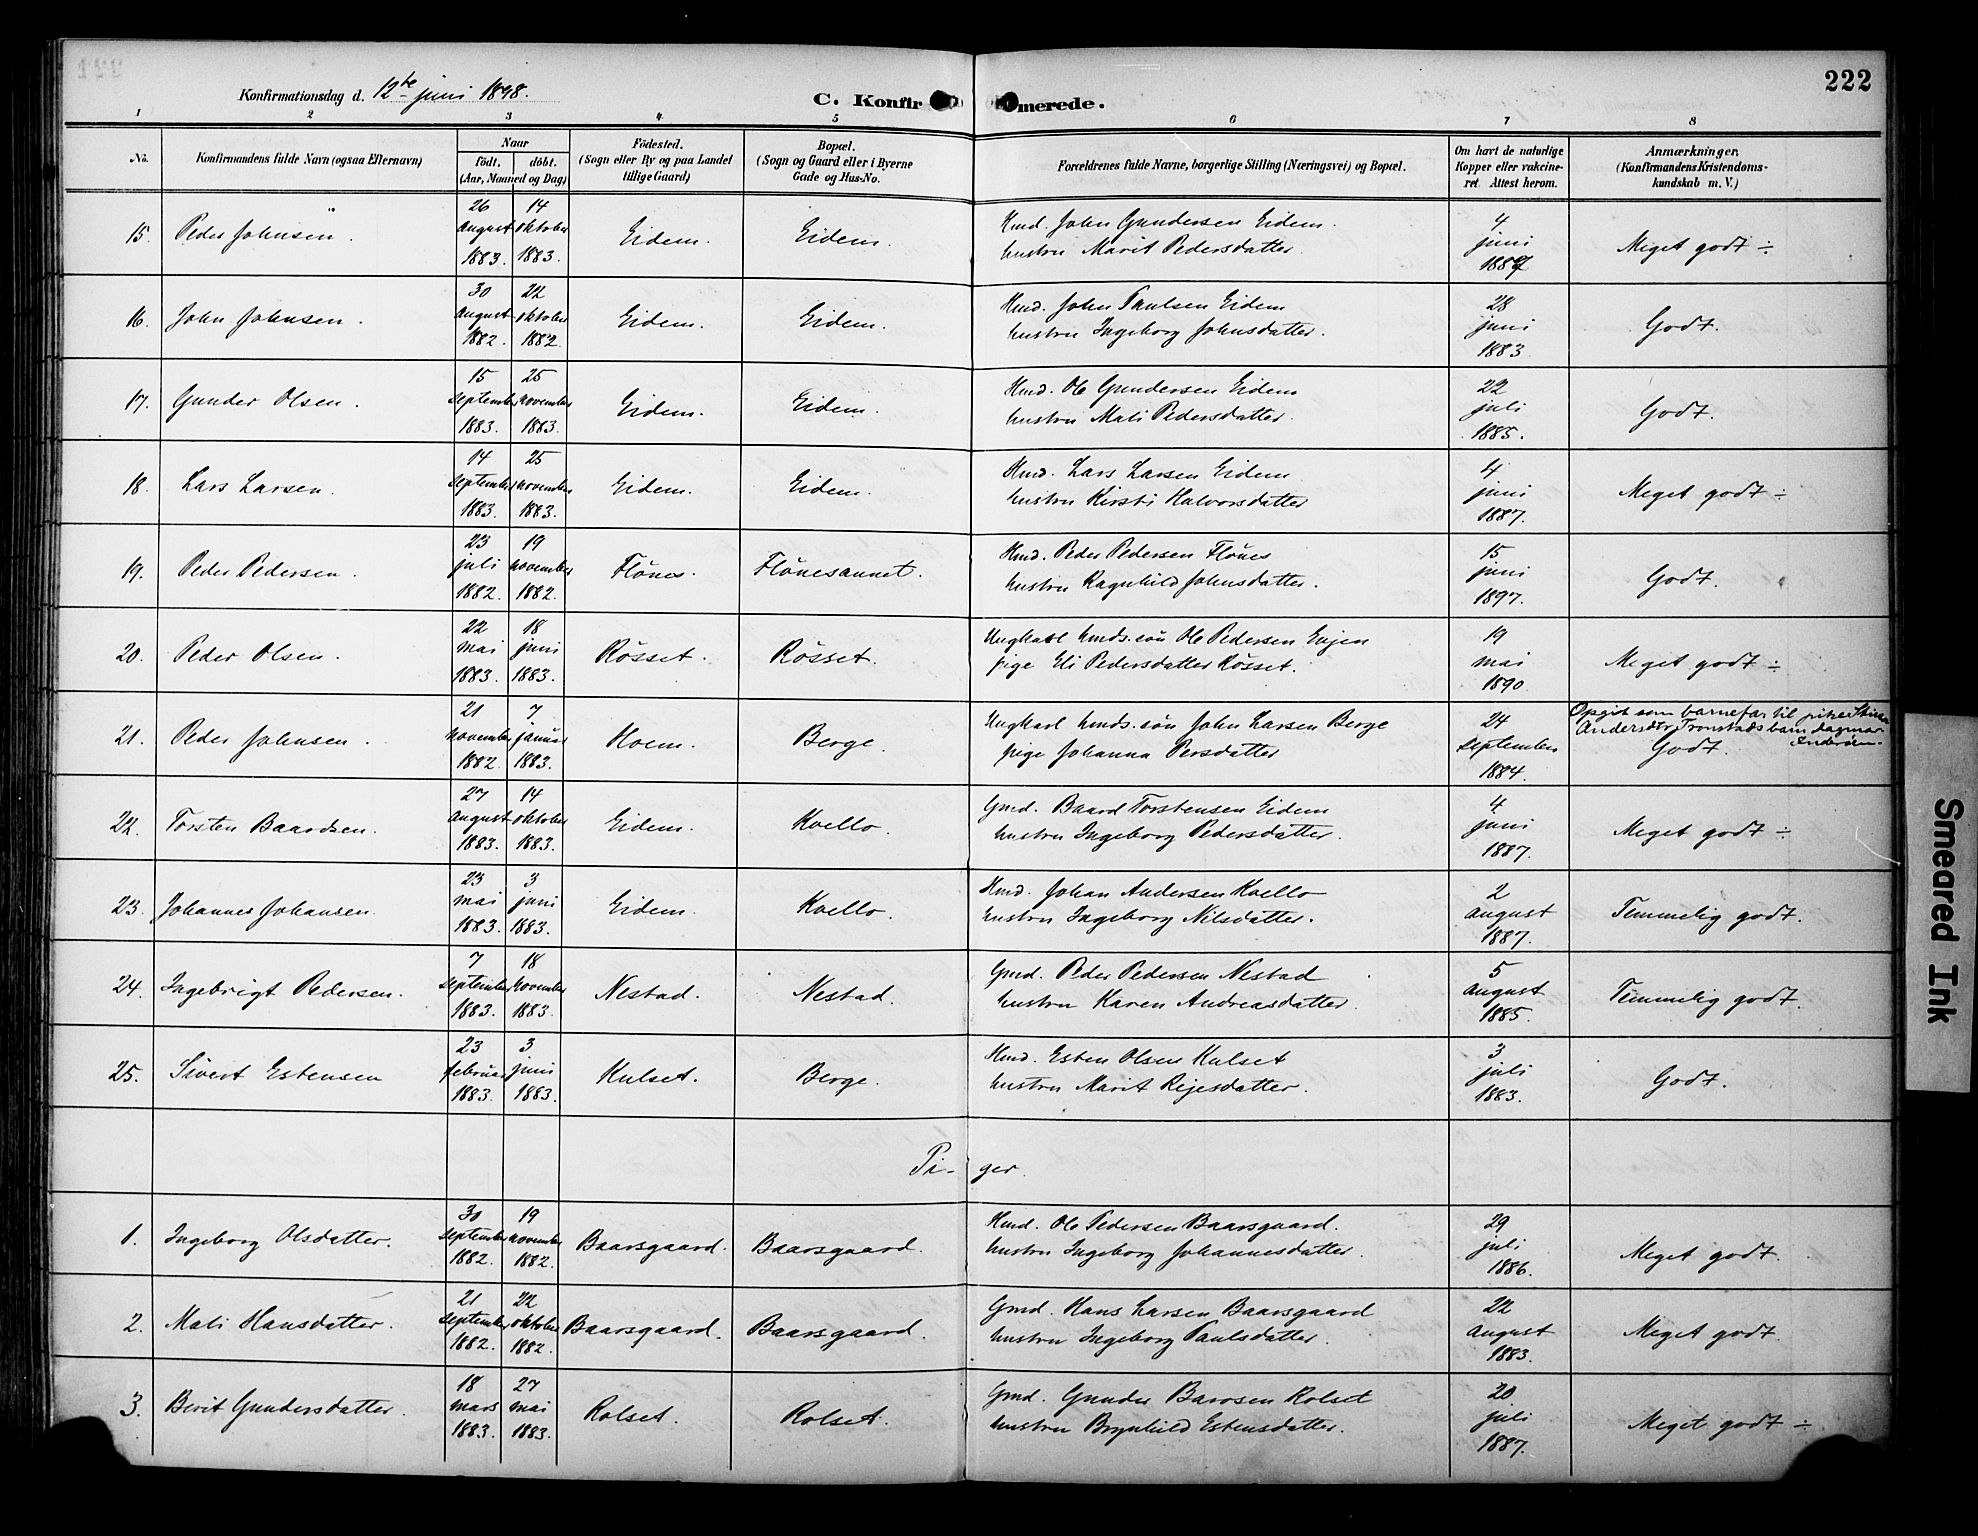 222
Konfirmationsdag d. 12te juni 1898.
C. Konfirmerede.
1 2 3 4 5 6 7 8
No. Konfirmandens fulde Navn (ogsaa Efternavn) Naar födt. döbt. (Aar, Maaned og Dag) Födested. (Sogn eller By og paa Landet tillige Gaard) Bopæl. (Sogn og Gaard eller i Byerne Gade og Hus-No. Forældrenes fulde Navne, borgerlige Stilling (Næringsvei) og Bopæl. Om havt de naturlige Kopper eller vakcineret. Attest herom. Anmærkninger. (Konfirmandens Kristendomskundskab m. V.)
15. Peder Johnsen. 26 august 1883. 14 oktober 1883. Eidem. Eidem. Hmd. John Gundersen Eidem. hustru Marit Pedersdatter. 4 juni 1887 Meget godt ÷
16. John Johnsen. 30 august 1882. 22 oktober 1882. Eidem. Eidem. Hmd. John Paulsen Eidem hustru Ingeborg Johnsdatter. 28 juni 1883. Godt.
17. Gunder Olsen. 15 september 1883. 25 november 1883. Eidem. Eidem. Hmd. Ole Gundersen Eidem hustru Mali Pedersdatter. 22 juli 1885. Godt.
18. Lars Larsen. 14 september 1883. 25 november 1883. Eidem. Eidem. Hmd. Lars Larsen Eidem hustru Kirsti Halvorsdatter 4 juni 1887. Meget godt ÷
19. Peder Pedersen. 23 juli 1882. 19 november 1882. Flönes. Flönesaunet. Hmd. Peder Pedersen Flönes hustru Ragnhild Johnsdatter. 15 juni 1897. Godt.
20. Peder Olsen. 22 mai 1883. 18 juni 1883. Rösset. Rösset. Ungkarl hmds. sön Ole Pedersen Evjen pige Eli Pedersdatter Rösset. 19 mai 1890. Meget godt ÷
21. Peder Johnsen. 21 november 1882. 7 januar 1883. Hoem. Berge. Ungkarl hmds. sön John Larsen Berge pige Johanna Persdatter 24 september 1884. Opgit som barnefar til piken Andersdtr Tronstads barn dagmar Inderöen. Godt.
22. Torsten Baardsen. 27 august 1883. 14 oktober 1883. Eidem. Kvello. Gmd. Baard Torstensen Eidem hustru Ingeborg Pedersdatter. 4 juni 1887. Meget godt ÷
23. Johannes Johansen. 23 mai 1883. 3 juni 1883. Eidem. Kvello. Hmd. Johan Andersen Kvello hustru Ingeborg Nilsdatter. 2 august 1887. Temmelig godt.
24. Ingebrigt Pedersen. 7 september 1883. 18 november 1883. Nestad. Nestad. Gmd. Peder Pedersen Nestad hustru Karen Andreasdatter. 5 august 1885. Temmelig godt.
25. Sivert Estensen 23 februar 1883. 3 juni 1883. Kulset. Berge. Hmd. Esten Olsen Kulset hustru Marit Rejesdatter. 3 juli 1883. Godt.
Pi- ger.
1. Ingeborg Olsdatter. 30 september 1882. 19 november 1882. Baarsgaard. Baarsgaard. Hmd. Ole Pedersen Baarsgaard. hustru Ingeborg Johannesdatter. 29 juli 1886. Meget godt
2. Mali Hansdatter. 21 september 1882. 22 oktober 1882. Baarsgaard. Baarsgaard. Gmd. Hans Larsen Baarsgaard hustru Ingeborg Paulsdatter. 22 august 1883. Meget godt.
3. Berit Gundersdatter. 18 mars 1883. 27 mai 1883. Rolset. Rolset. Gmd. Gunder Barosen Rolset hustru Brynhild Estensdatter. 20 juli 1887. Meget godt ÷
Smeared Ink